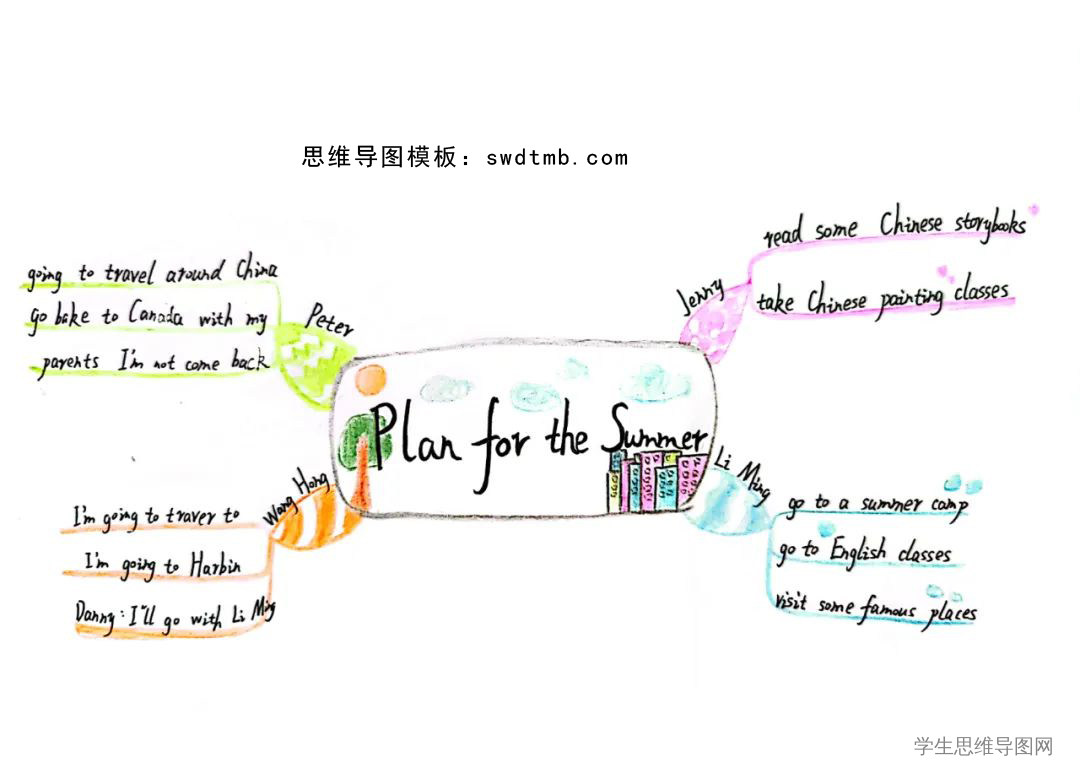 思维导图模板：swdtmb.com
Plan for the Summer
Peter
going to travel around China
Go bake to Canada with my
parents I'm not come back
Jenny
read some Chinese storybooks
take Chinese painting classes
Wang Hong
I'm going to traver to
I'm going to Harbin
Danny: I'll go with Li Ming
Li Ming
go to a summer camp
go to English classes
visit some famous places
学生思维导图网